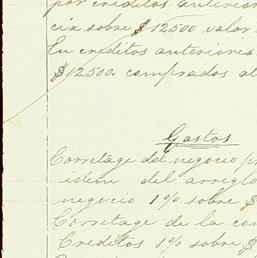 por creditos anterior
cix sobre $12500 valor
En creditos anteriores
$12500. comprados al
Gastos
Corretage del negocio
idem del arreglo
negocio 1% sobre $
Corretage de la con
Creditos 1% sobre $